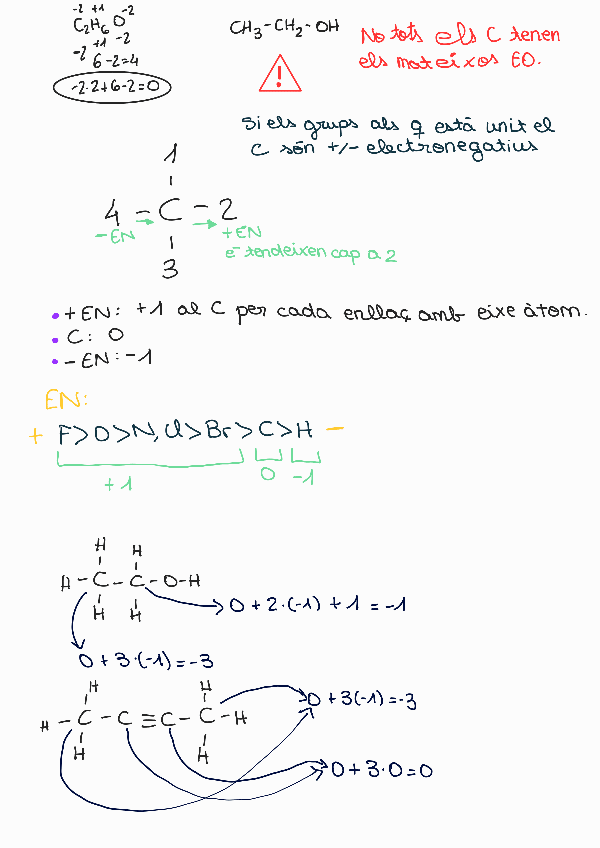 -2 +1 -2
C2H6O
-2 +1 -2
6-2=4
-2·2+6-2=0
CH3-CH2-OH
No tots els C tenen
els mateixos EO.
!
Si els grups als q està unit el
C són +/- electronegatius
1
4 - C - 2
-EN +EN
e⁻ tendeixen cap a 2
3
• +EN: +1 al C per cada enllaç amb eixe àtom.
• C: 0
• -EN: -1
EN:
+ F>O>N,Cl>Br>C>H -
+1 0 -1
H H
H-C-C-O-H
H H
0+2·(-1)+1=-1
0+3·(-1)=-3
H H
H-C-C≡C-C-H
H H
0+3(-1)=-3
0+3·0=0